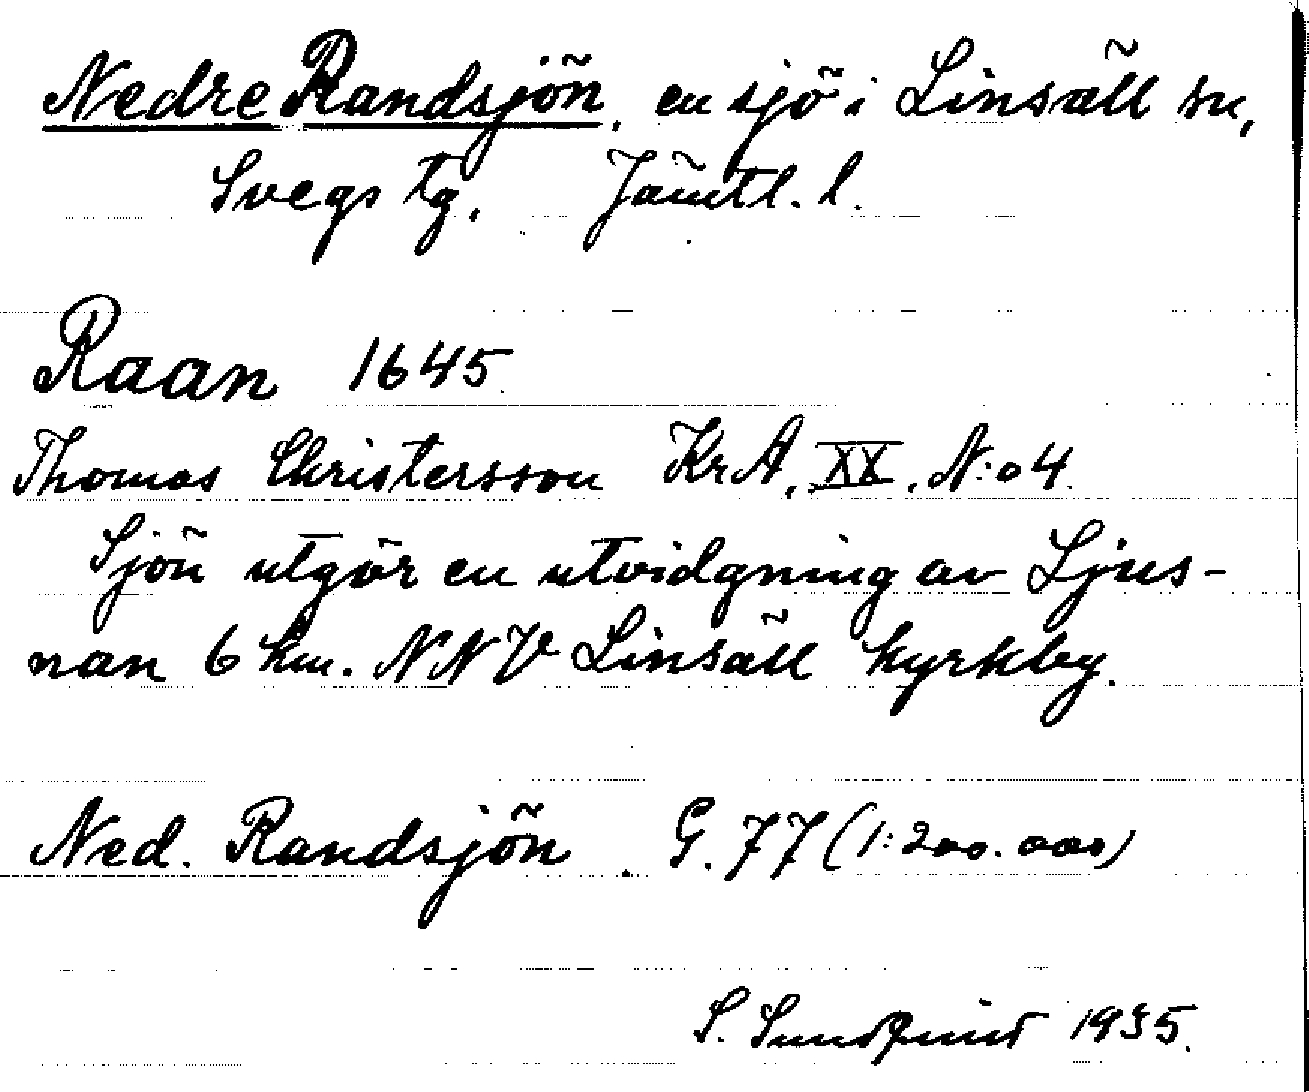 Nedre Randsjön, en sjö i Linsäll sn,
Svegs tg. Jämtl. l.
Raan 1645.
Thomas Christersson KrA, XX, N:o 4.
Sjön utgör en utvidgning av Ljus-
nan 6 km. NNV Linsäll kyrkby.
Ned. Randsjön. G. 77 (1:200.000)
S. Sundqvist 1935.